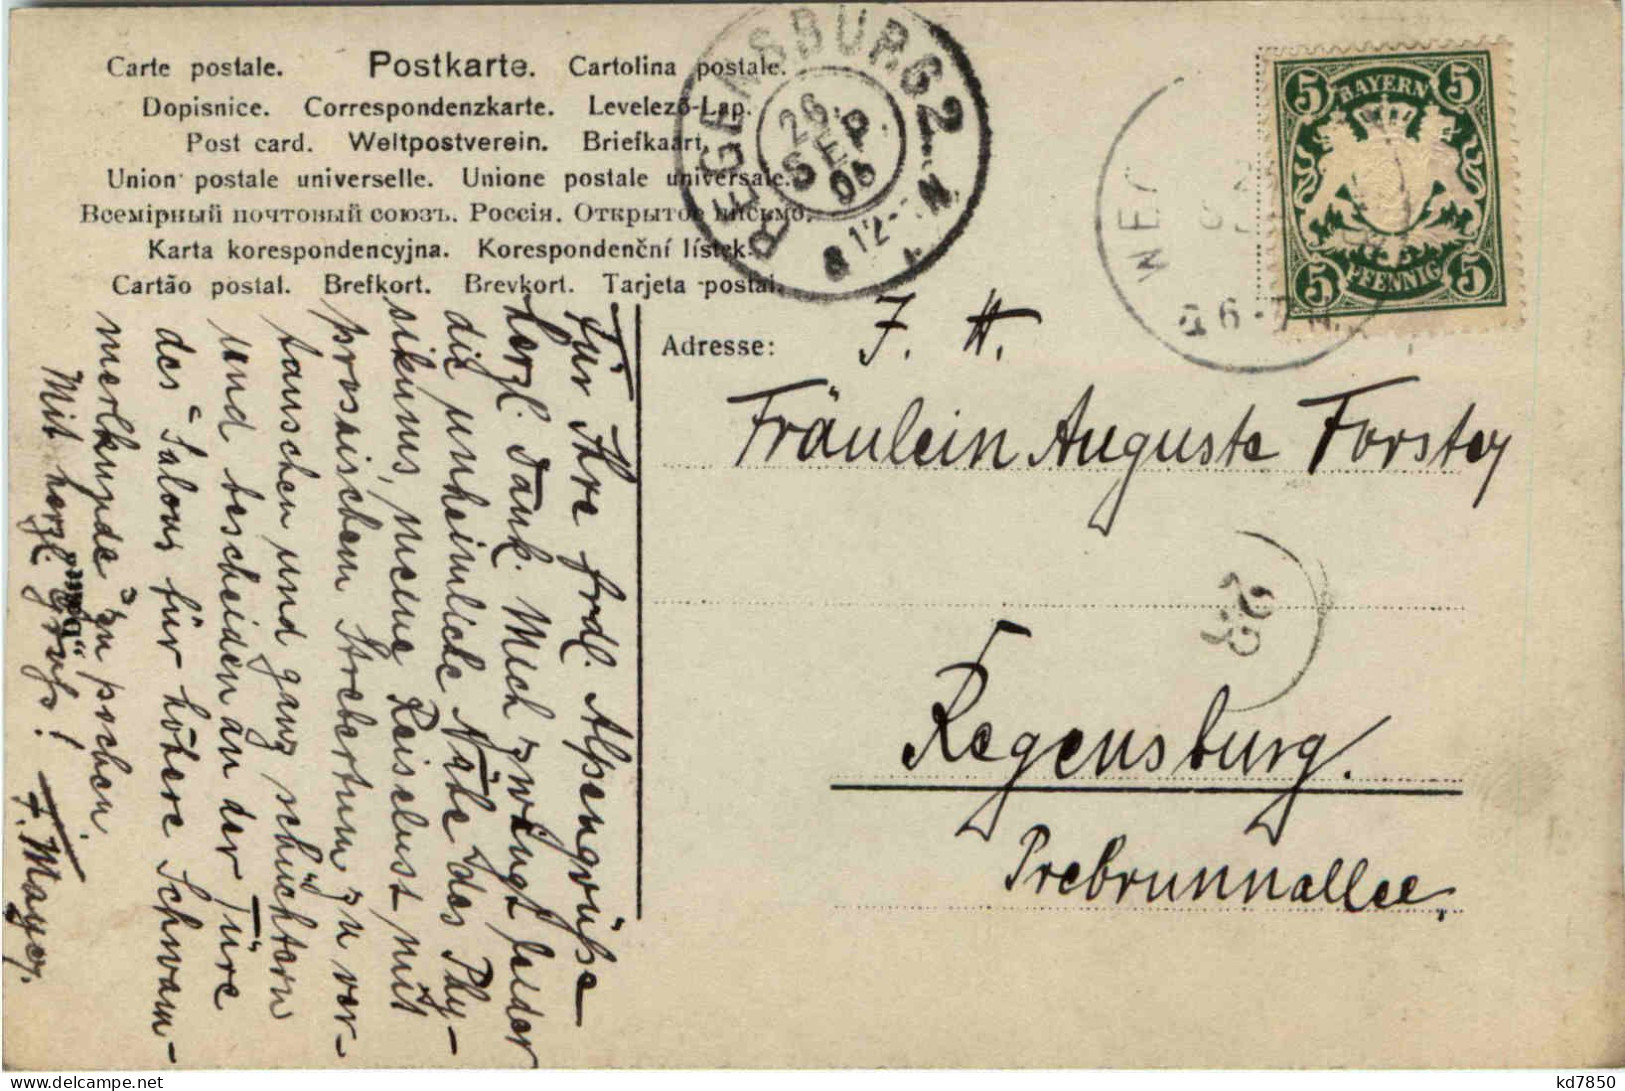 Carte postale. Postkarte. Cartolina postale.
Dopisnice. Correspondenzkarte. Levelező-Lap.
Post card. Weltpostverein. Briefkaart.
Union postale universelle. Unione postale universale.
Всемірный почтовый союзъ. Россія. Открытое письмо.
Karta korespondencyjna. Korespondenční lístek.
Cartão postal. Brefkort. Brevkort. Tarjeta postal.
REGENSBURG 2
26
SEP
06
BAYERN
5 5
5 5
PFENNIG
Adresse:
J. H.
Fräulein Auguste Forster
Regensburg.
Prebrunnallee.
Für Ihre frdl. Alpengrüße
herzl. Dank. Mich zwingt leider
die unheimliche Nähe des Phy-
sikums, meine Reiselust mit
prosaischem Strebertum zu ver-
tauschen und ganz schüchtern
und bescheiden an der Türe
des "Salons für höhere Schwam-
merlkunde" zu pochen.
Mit herzl. Gruß!
F. Mayer.
kd7850